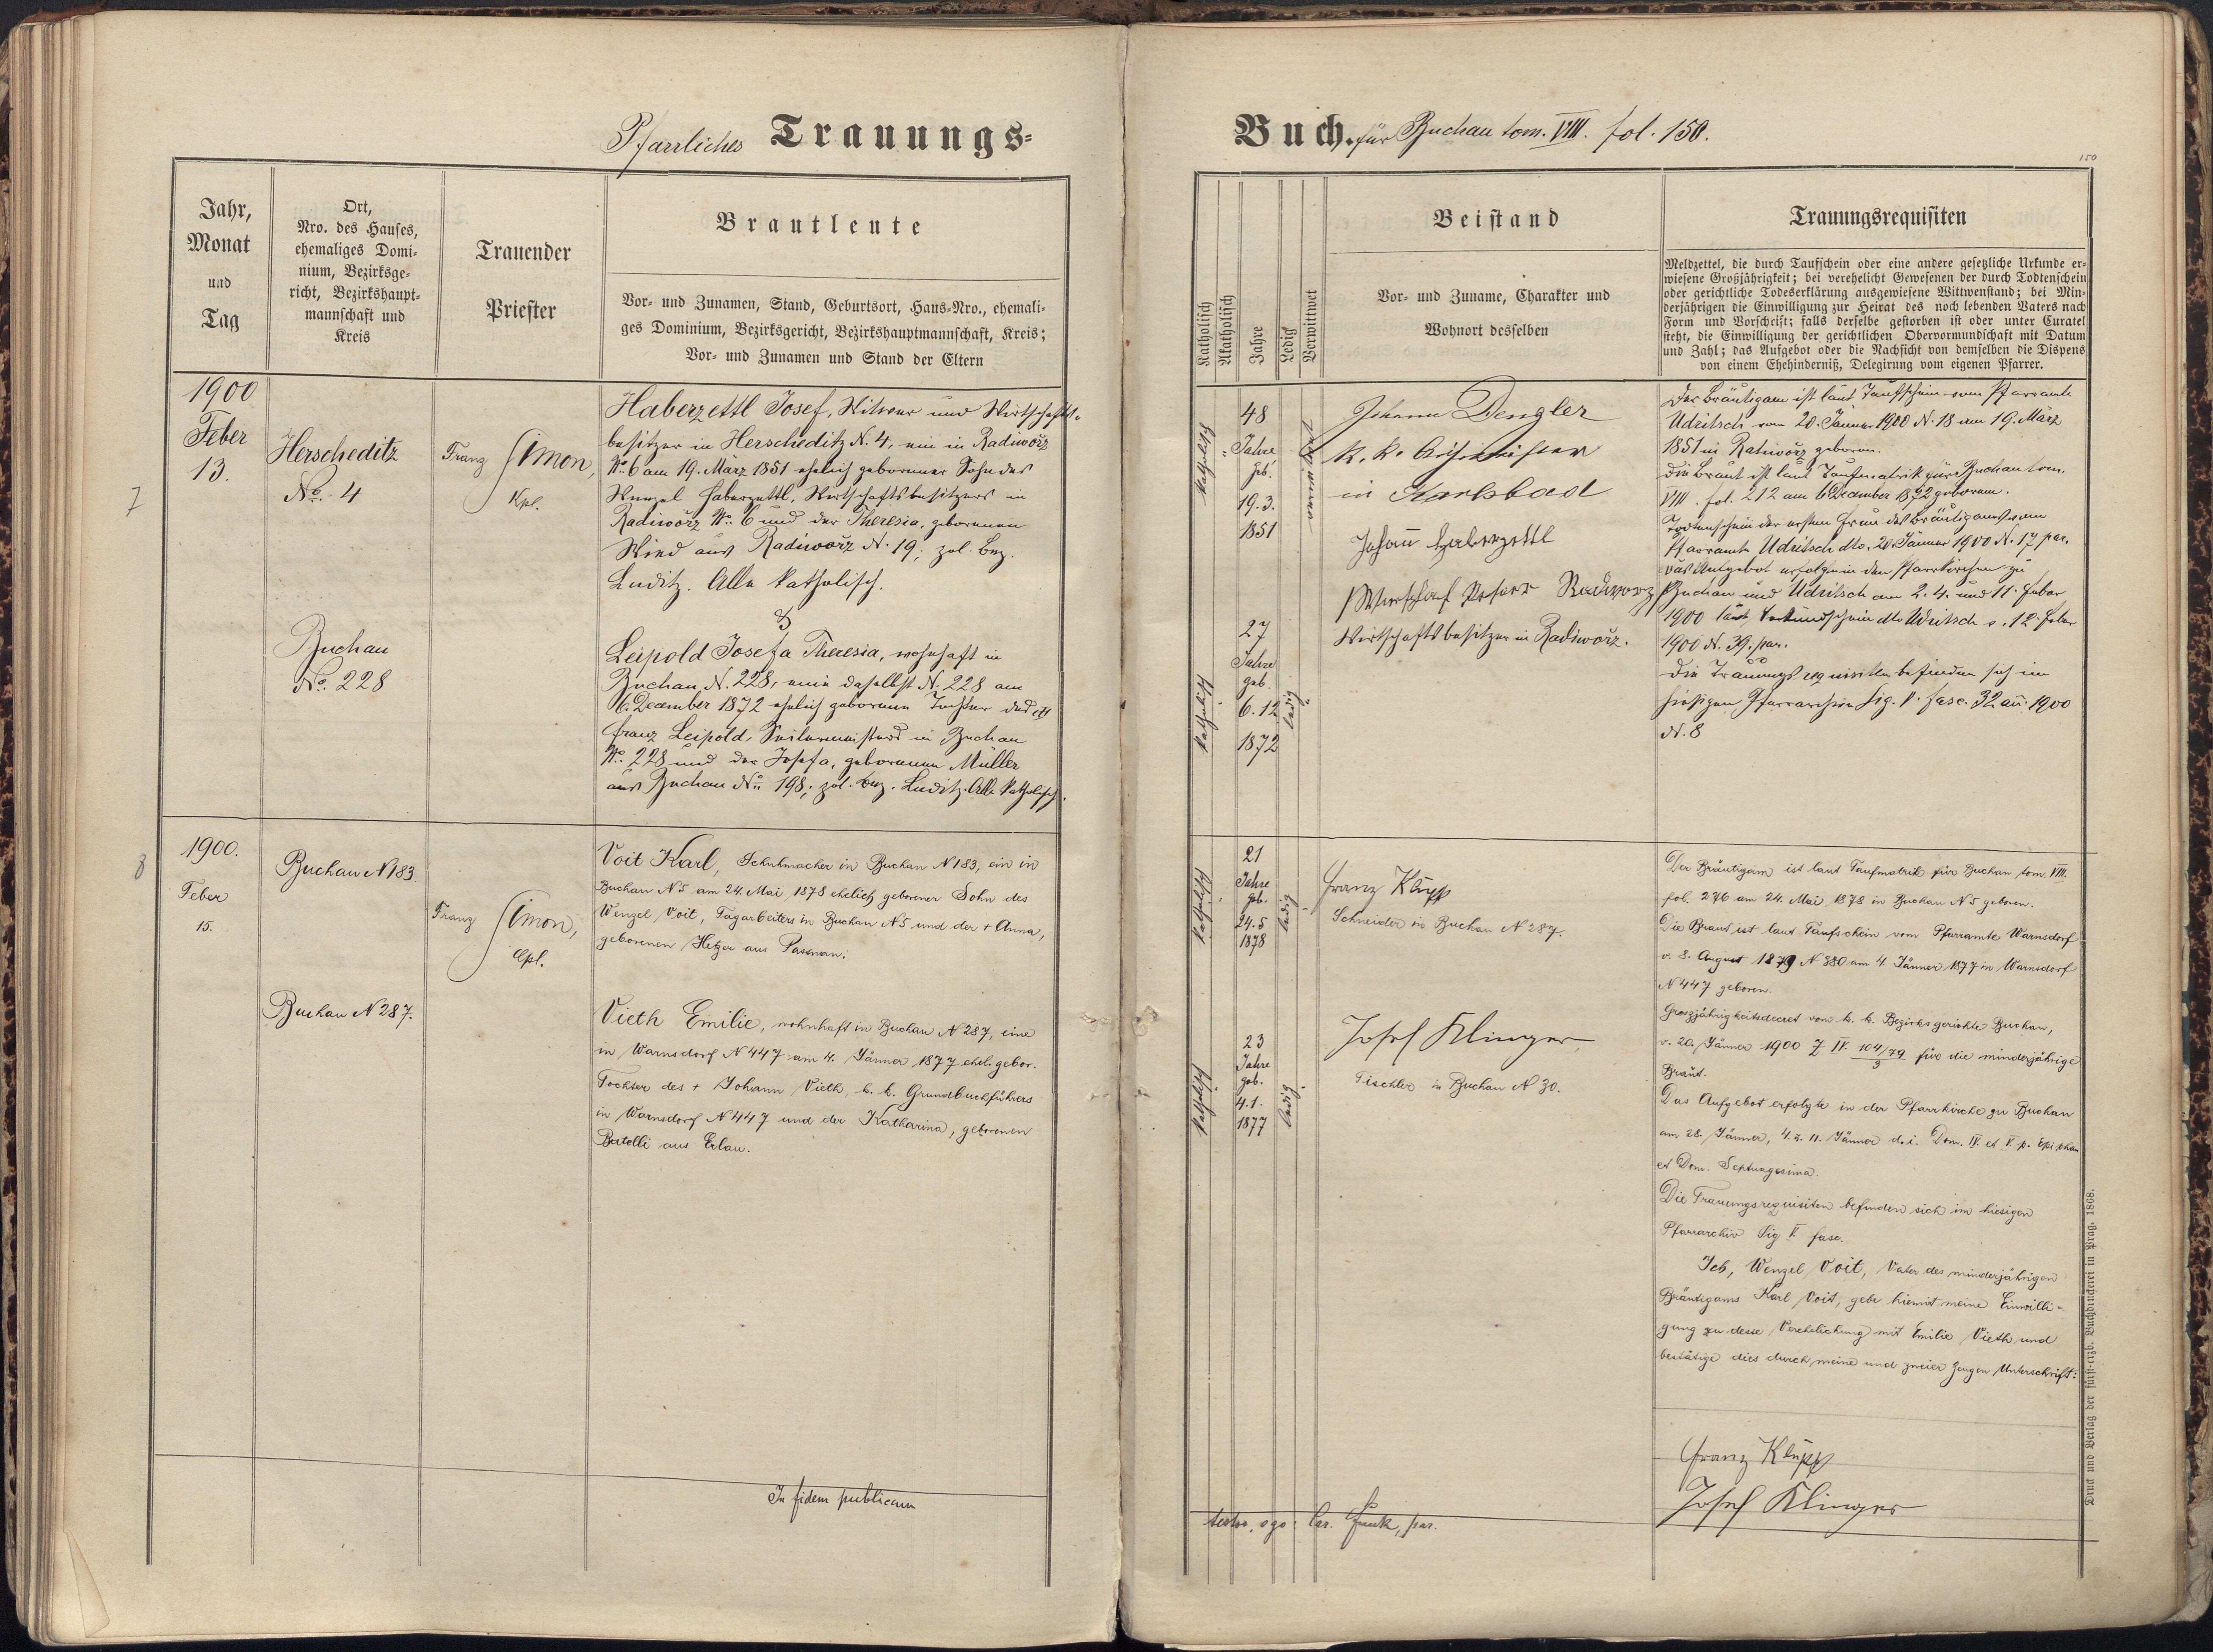 Pfarrliches Trauungs-
Jahr,
Monat
und
Tag
Ort,
Nro. des Hauses,
ehemaliges Domi-
nium, Bezirksge-
richt, Bezirkshaupt-
mannschaft und
Kreis
Trauender
Priester
Brautleute
Vor- und Zunamen, Stand, Geburtsort, Haus-Nro., ehemali-
ges Dominium, Bezirksgericht, Bezirkshauptmannschaft, Kreis;
Vor- und Zunamen und Stand der Eltern
7
1900
Feber
13.
Herscheditz
No. 4
Buchau
No. 228
Franz Simon,
Kpl.
Haberzettl Josef, Witwer und Wirtschafts-
besitzer in Herscheditz N. 4, ein in Radiworz
No. 6 am 19. März 1851 ehelich geborener Sohn des
Wenzel Haberzettl, Wirtschaftsbesitzers in
Radiworz No. 6 und der Theresia, geborenen
Wied aus Radiworz N. 19; pol. Bez.
Luditz. Alle katholisch.
&
Leipold Josefa Theresia, wohnhaft in
Buchau N. 228, eine daselbst N. 228 am
6. December 1872 ehelich geborene Tochter des
Franz Leipold, Seilermeisters in Buchau
No. 228 und der Josefa, geborenen Müller
aus Buchau No 198; pol. Bez. Luditz. Alle katholisch.
8
1900.
Feber
15.
Buchau N 183.
Buchau N 287.
Franz Simon,
Cpl.
Voit Karl, Schuhmacher in Buchau N 183, ein in
Buchau N 5 am 24. Mai 1878 ehelich geborener Sohn des
Wenzel Voit, Tagarbeiters in Buchau N 5 und der + Anna,
geborenen Hetzer aus
Vieth Emilie, wohnhaft in Buchau N 287, eine
in Warnsdorf N 447 am 4. Jänner 1877 ehel. gebor.
Tochter des + Johann Vieth, k. k. Grundbuchführers
in Warnsdorf N 447 und der Katharina, geborenen
Batelli aus Erlau.
In fidem publicam
Buch. für Buchau tom. VIII. fol. 150.
150
Katholisch
Akatholisch
Jahre
Ledig
Verwittwet
Beistand
Vor- und Zuname, Charakter und
Wohnort desselben
Trauungsrequisiten
Meldzettel, die durch Taufschein oder eine andere gesetzliche Urkunde er-
wiesene Großjährigkeit; bei verehelicht Gewesenen der durch Todtenschein
oder gerichtliche Todeserklärung ausgewiesene Wittwenstand; bei Min-
derjährigen die Einwilligung zur Heirat des noch lebenden Vaters nach
Form und Vorschrift; falls derselbe gestorben ist oder unter Curatel
steht, die Einwilligung der gerichtlichen Obervormundschaft mit Datum
und Zahl; das Aufgebot oder die Nachsicht von demselben die Dispens
von einem Ehehinderniß, Delegirung vom eigenen Pfarrer.
katholisch
48
Jahre
geb.
19.3.
1851
verwitwet
Johann Dengler
k. k.
in Karlsbad
Johann Haberzettl
Radiworz
Wirtschaftsbesitzer in Radiworz.
katholisch
27
Jahre
geb.
6.12.
1872
ledig
Der Bräutigam ist laut Taufschein vom Pfarramte
Udritsch vom 20. Jänner 1900 N. 18 am 19. März
1851 in Radiworz geboren.
Die Braut ist laut Taufmatrik für Buchau tom.
VIII. fol. 212 am 6. December 1872 geboren.
Todtenschein der ersten Frau des Bräutigams vom
Pfarramte Udritsch dto. 20. Jänner 1900 N. 17 par.
Das Aufgebot erfolgte in den Pfarrkirchen zu
Buchau und Udritsch am 2. 4. und 11. Feber
1900 laut Verkündschein dto Udritsch v. 12. Feber
1900 N. 39. par.
Die Trauungsrequisiten befinden sich im
hiesigen Pfarrarchive Sig. V. fasc. 32 an. 1900
N. 8
katholisch
21
Jahre
geb.
24.5
1878
ledig
Franz Klupp
Schneider in Buchau N 287.
katholisch
23
Jahre
geb.
4.1.
1877
ledig
Josef Klinger,
Tischler in Buchau N 30.
Der Bräutigam ist laut Taufmatrik für Buchau tom. VIII.
fol. 276 am 24. Mai 1878 in Buchau N 5 geboren.
Die Braut ist laut Taufschein vom Pfarramte Warnsdorf
v. 8. August 1879 N 380 am 4. Jänner 1877 in Warnsdorf
N 447 geboren.
Groszjährigkeitsdecret vom k. k. Bezirksgerichte Buchau,
v. 20. Jänner 1900 Z IV. 104/79 3 für die minderjährige
Braut.
Das Aufgebot erfolgte in der Pfarrkirche zu Buchau
am 28. Jänner, 4. u. 11. Jänner d. i. Dom. IV. et V. p. Epiphan
et Dom. Septuagesima.
Die Trauungsrequisiten befinden sich im hiesigen
Pfarrarchiv Sig V. fasc.
Ich, Wenzel Voit, Vater des minderjährigen
Bräutigams Karl Voit, gebe hiemit meine Einwilli-
gung zu desse Verehelichung mit Emilie Vieth und
bestätige dies durch meine und zweier Zeugen Unterschrift:
Franz Klupp
Josef Klinger
testor ego: Car. Funk, par.
Druck und Verlag der fürst-erzb. Buchdruckerei in Prag. 1868.